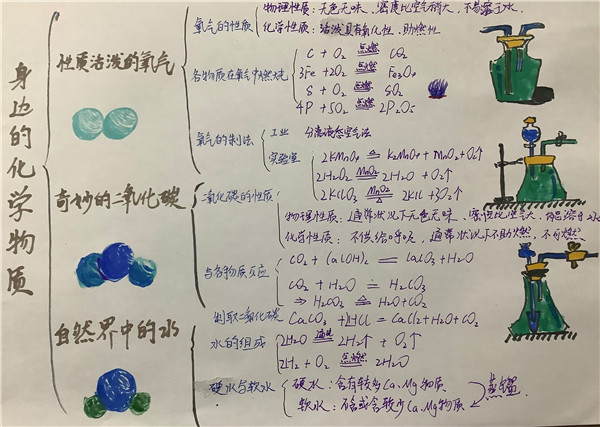 身边的化学物质
性质活泼的氧气
氧气的性质
物理性质:无色无味、密度比空气稍大,不易溶于水.
化学性质:活泼具有氧化性、助燃性
各物质在氧气中燃烧
C + O₂ 点燃 CO₂
3Fe + 2O₂ 点燃 Fe₃O₄
S + O₂ 点燃 SO₂
4P + 5O₂ 点燃 2P₂O₅
氧气的制法
工业 分离液态空气法
实验室
2KMnO₄ △ K₂MnO₄ + MnO₂ + O₂↑
2H₂O₂ MnO₂ 2H₂O + O₂↑
2KClO₃ MnO₂ △ 2KCl + 3O₂↑
奇妙的二氧化碳
二氧化碳的性质
物理性质:通常状况下无色无味、密度比空气大、能溶于水
化学性质:不供给呼吸,通常状况下不助燃,不可燃
与各物质反应
CO₂ + Ca(OH)₂ = CaCO₃ + H₂O
CO₂ + H₂O = H₂CO₃
⇒ H₂CO₃ △ H₂O + CO₂
制取二氧化碳 CaCO₃ + HCl = CaCl₂ + H₂O + CO₂
自然界中的水
水的组成
2H₂O 通电 2H₂↑ + O₂↑
2H₂ + O₂ 点燃 2H₂O
硬水与软水
硬水:含有较多Ca、Mg物质
软水:不含或含较少Ca、Mg物质
蒸馏